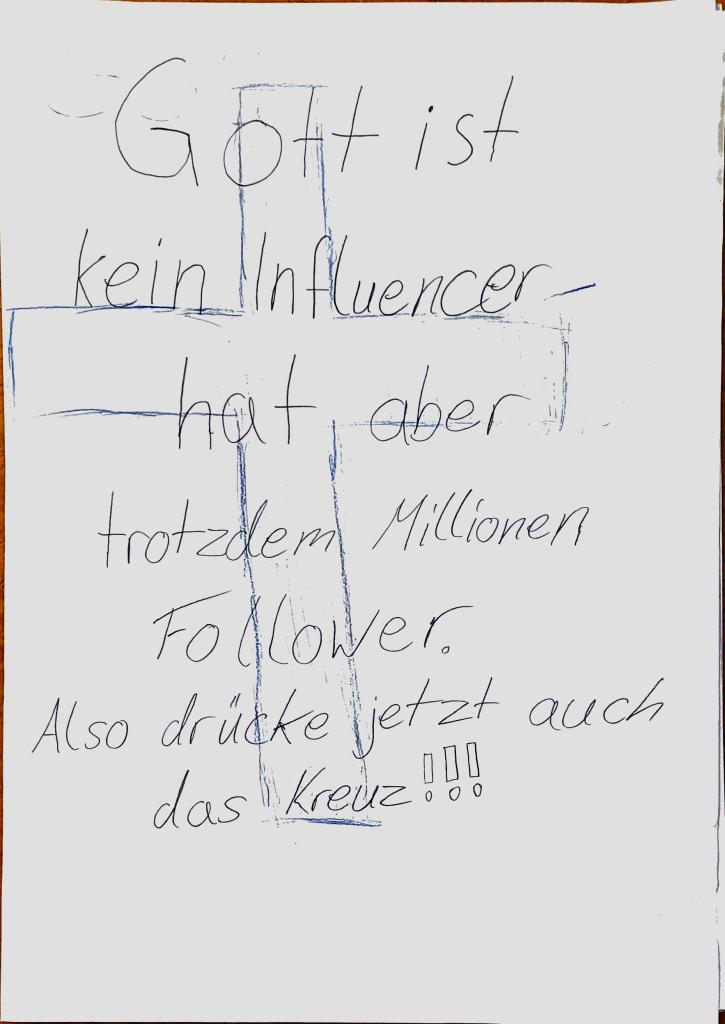 Gott ist
kein Influencer
hat aber
trotzdem Millionen
Follower.
Also drücke jetzt auch
das Kreuz!!!